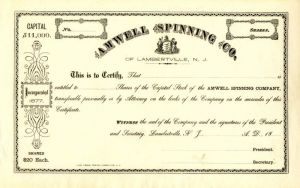 CAPITAL
$44,000.
No.
SHARES.
AMWELL SPINNING CO.
OF LAMBERTVILLE, N. J.
This is to Certify, That
is
entitled to Shares of the Capital Stock of the AMWELL SPINNING COMPANY,
transferable personally or by Attorney on the books of the Company on the surrender of this
Certificate.
Incorporated
1877.
WITNESS the seal of the Company and the signatures of the President
and Secretary, Lambertville, N. J. A. D. 18
SHARES
$20 Each.
President.
Secretary.